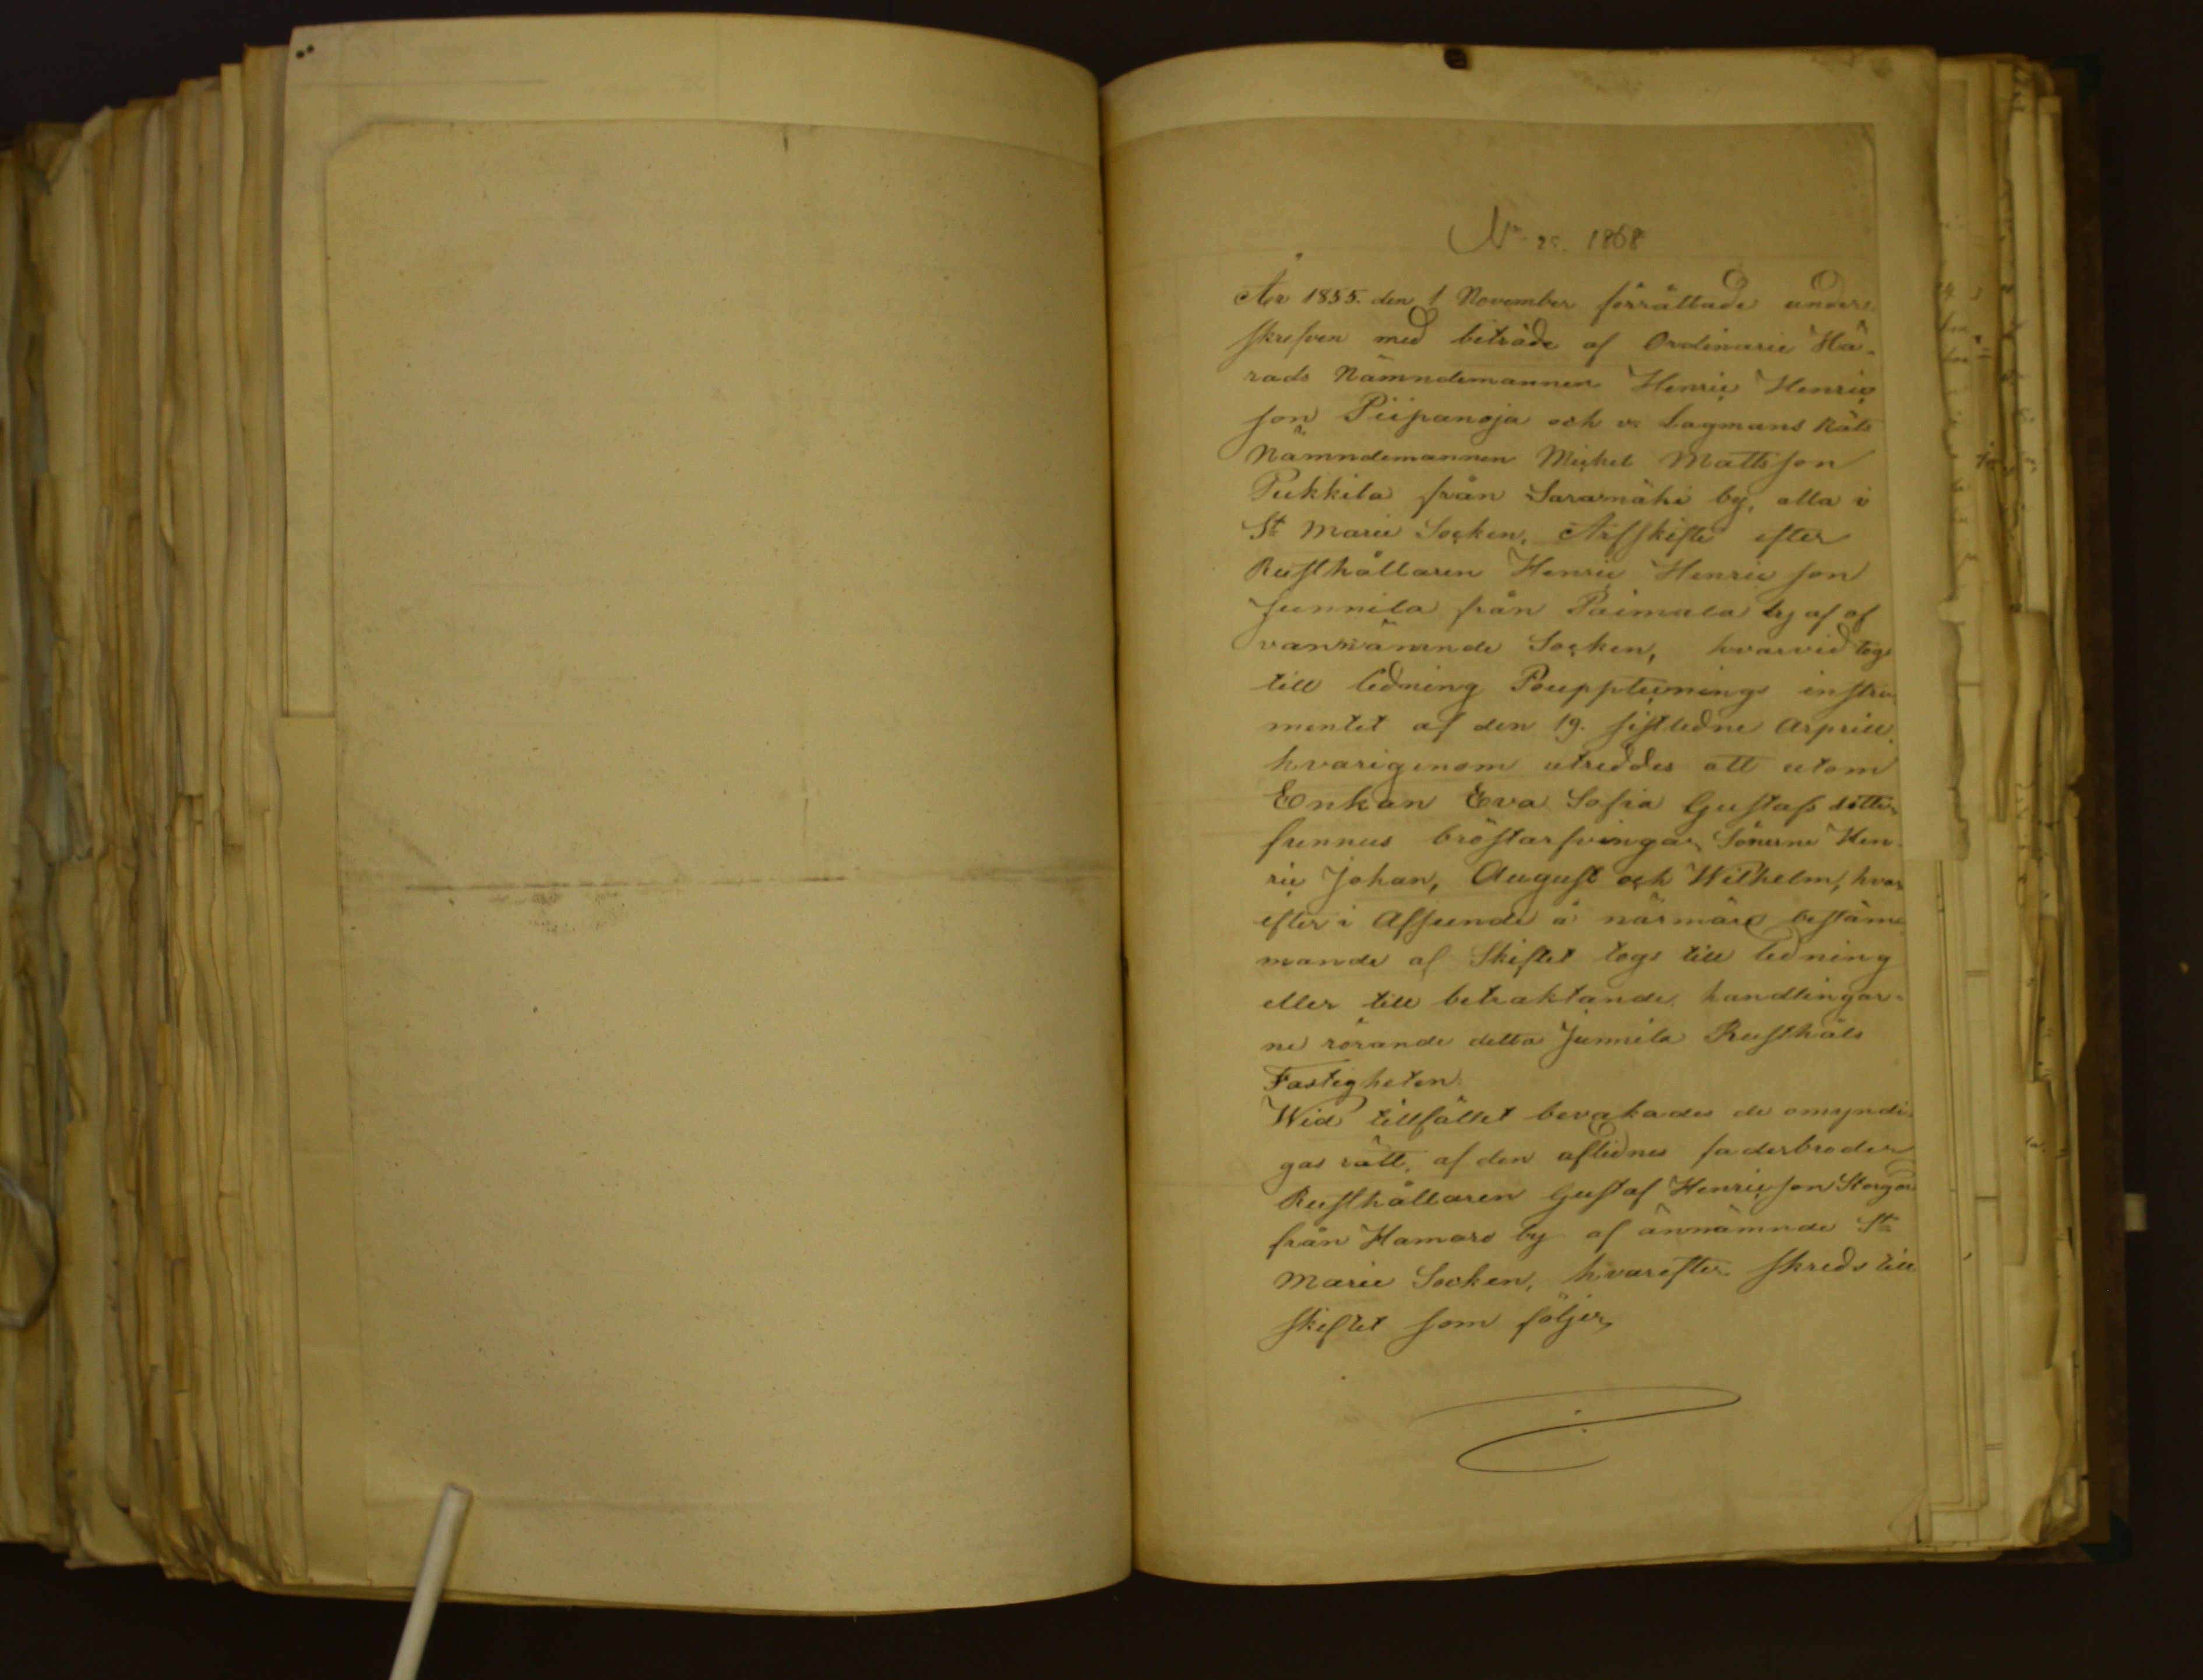 No 25. 1868
År 1855. den 1 November förrättade under
skrefven med beträde af Ordinarie Hä-
rads Nämndemannen Henric Henric
son Piipanoja och v. Lagmans Räts
Nämndemannen Michel Mattsson
Pukkila från Saramäki by, alla i
St Marie Socken, Arfskifte efter
Rusthållaren Henric Henric son
Junnila från Paimala by af of
vannämnde Socken, hvarvid togs
till ledning Bouppteknings instru
mentet af den 19. sistledne Arprill
hvarigenom utreddes att utom
Enkan Eva Sofia Gustafs dotter
funnus bröstarfvingar, Sönerne Hen
ric Johan, August och Wilhelm, hvar
efter i Afseende å närmare bestäm
mande af Skiftet togs till ledning
eller till betraktande handlingar-
ne rörande detta Junnila Rusthåls
Fastigheten.
Wid tillfället bevakades de omyndi
gas rätt, af den aflednes faderbroder
Rusthållaren Gustaf Henricson Storgård
från Hamaro by af ännämnde St
Marie Socken, hvarefter skreds till
skiftet som följer,